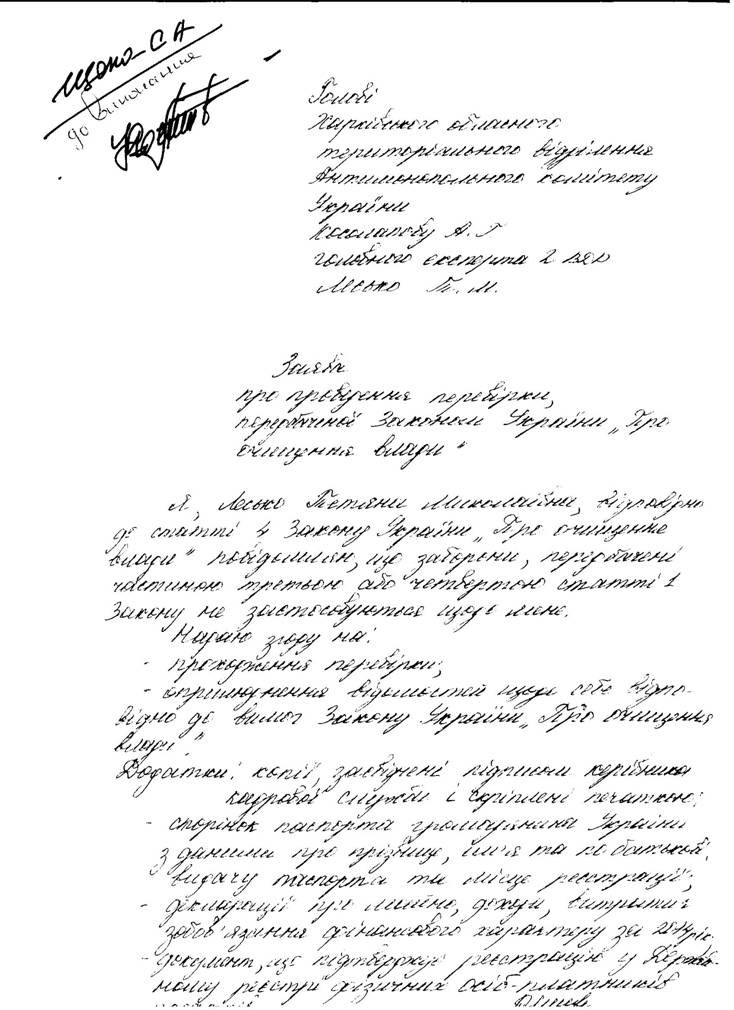 до виконання
Голові
Харківського обласного
територіального відділення
Антимонопольного комітету
України
Косолапову А. Г
головного експерта 2
Лесько Т. М.
Заява
про проведення перевірки,
передбаченої Законом України „Про
очищення влади"
Я, Лесько Тетяна Миколаївна, відповідно
до статті 4 Закону України „Про очищення
влади" повідомляю, що заборони, передбачені
частиною третьою або четвертою статті 1
Закону не застосовуються щодо мене.
Надаю згоду на:
- проходження перевірки;
- оприлюднення відомостей щодо себе відпо-
відно до вимог Закону України „Про очищення
влади"
Додатки: копії, засвідчені підписом керівника
кадрової служби і скріплені печаткою:
- сторінок паспорта громадянина України
з даними про прізвище, ім'я та по батькові,
видачу паспорта та місце реєстрації;
- декларації про майно, доходи, витрати і
зобов'язання фінансового характеру за 2014 рік
- документ, що підтверджує реєстрацію у Держав-
ному реєстрі фізичних осіб-платників